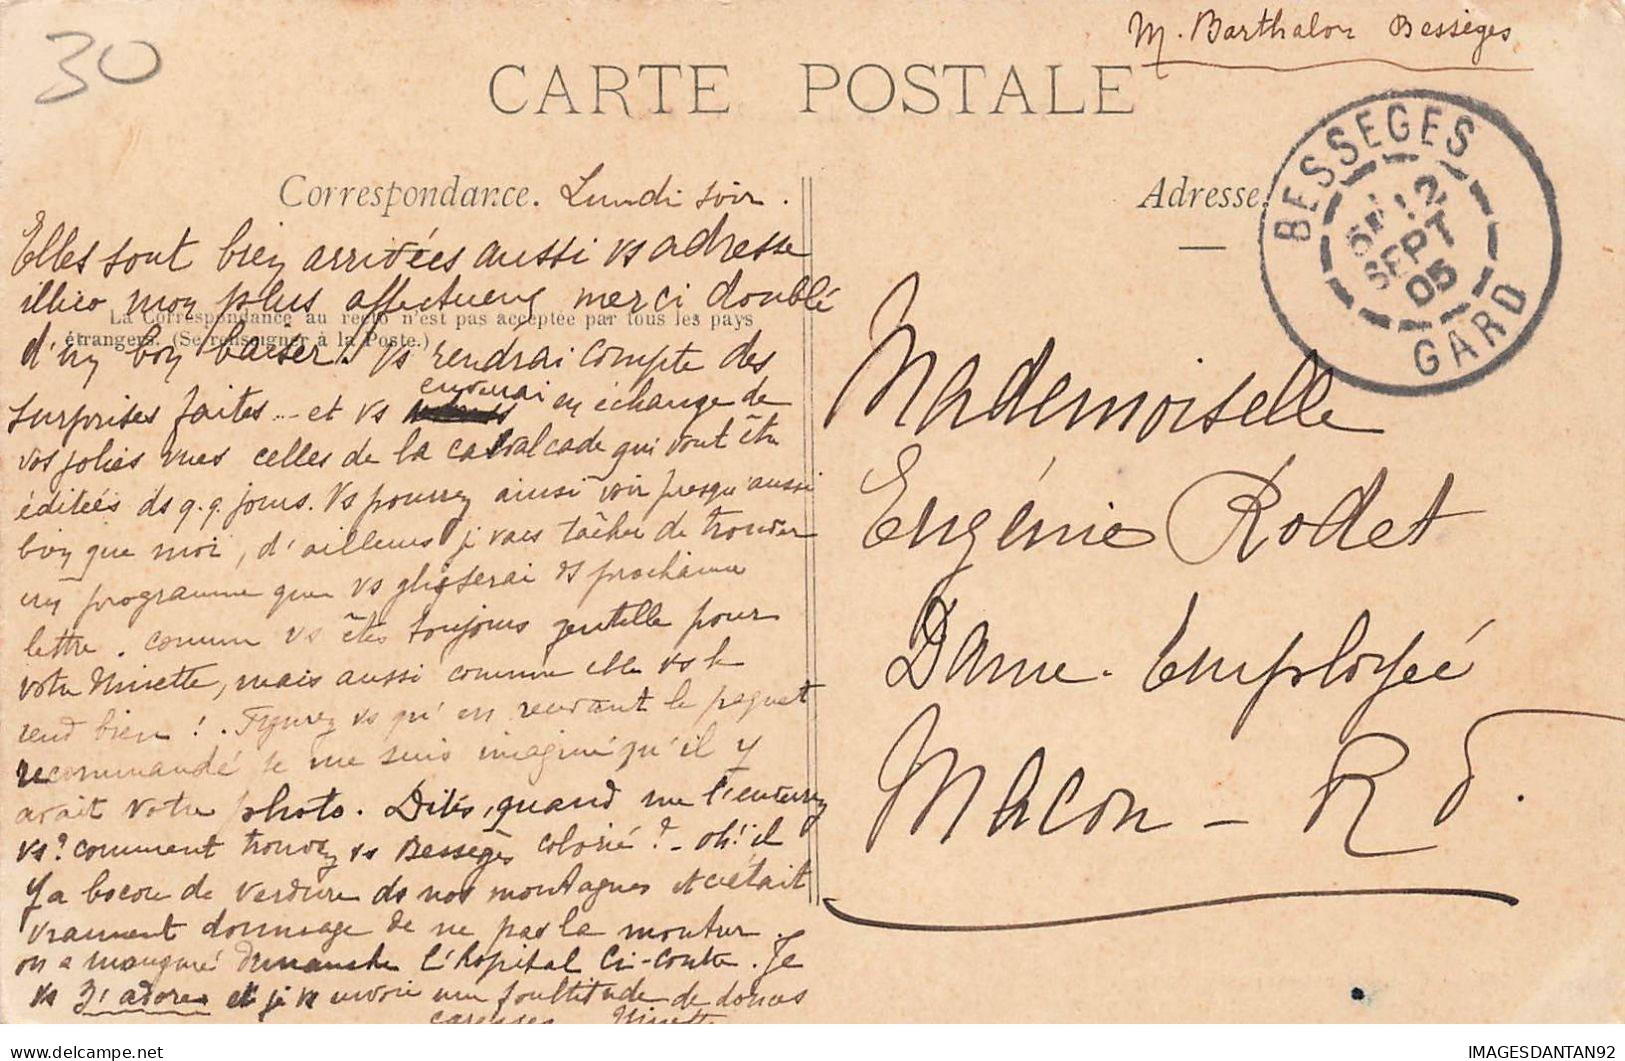 30
M. Barthalon Bessèges
CARTE POSTALE
Correspondance. Lundi soir.
Adresse.
BESSEGES
12
SEPT
05
GARD
Elles sont bien arrivées aussi vs adresse
illico mon plus affectueux merci doublé
La Correspondance au recto n'est pas acceptée par tous les pays
étrangers. (Se renseigner à la Poste.)
d'un bon baiser. Vs rendrai compte des
surprises faites... et vs enverrai en échange de
vos jolies vues celles de la cavalcade qui vont être
éditées ds q.q. jours. Vs pourrez ainsi voir presqu'aussi
bien que moi, d'ailleurs je vais tâcher de trouver
un programme que vs glisserai ds prochaine
lettre. comme vs êtes toujours gentille pour
votre Ninette, mais aussi comme elle vs le
rend bien ! . Figurez vs qu'en recevant le paquet
recommandé je me suis imaginé qu'il y
avait votre photo. Dites, quand me l'enverrez
vs? comment trouvez vs Bessèges colorié ? - oh! il
y a bocou de verdure ds nos montagnes et c'était
vraiment dommage de ne pas la montrer.
on a inauguré dimanche l'hôpital ci-contre. Je
vs adore et je vs envoie une foultitude de douces
caresses Ninette
Mademoiselle
Eugénie Rodet
Dame-Employée
Macon - R P.
IMAGESDANTAN92
delcampe.net